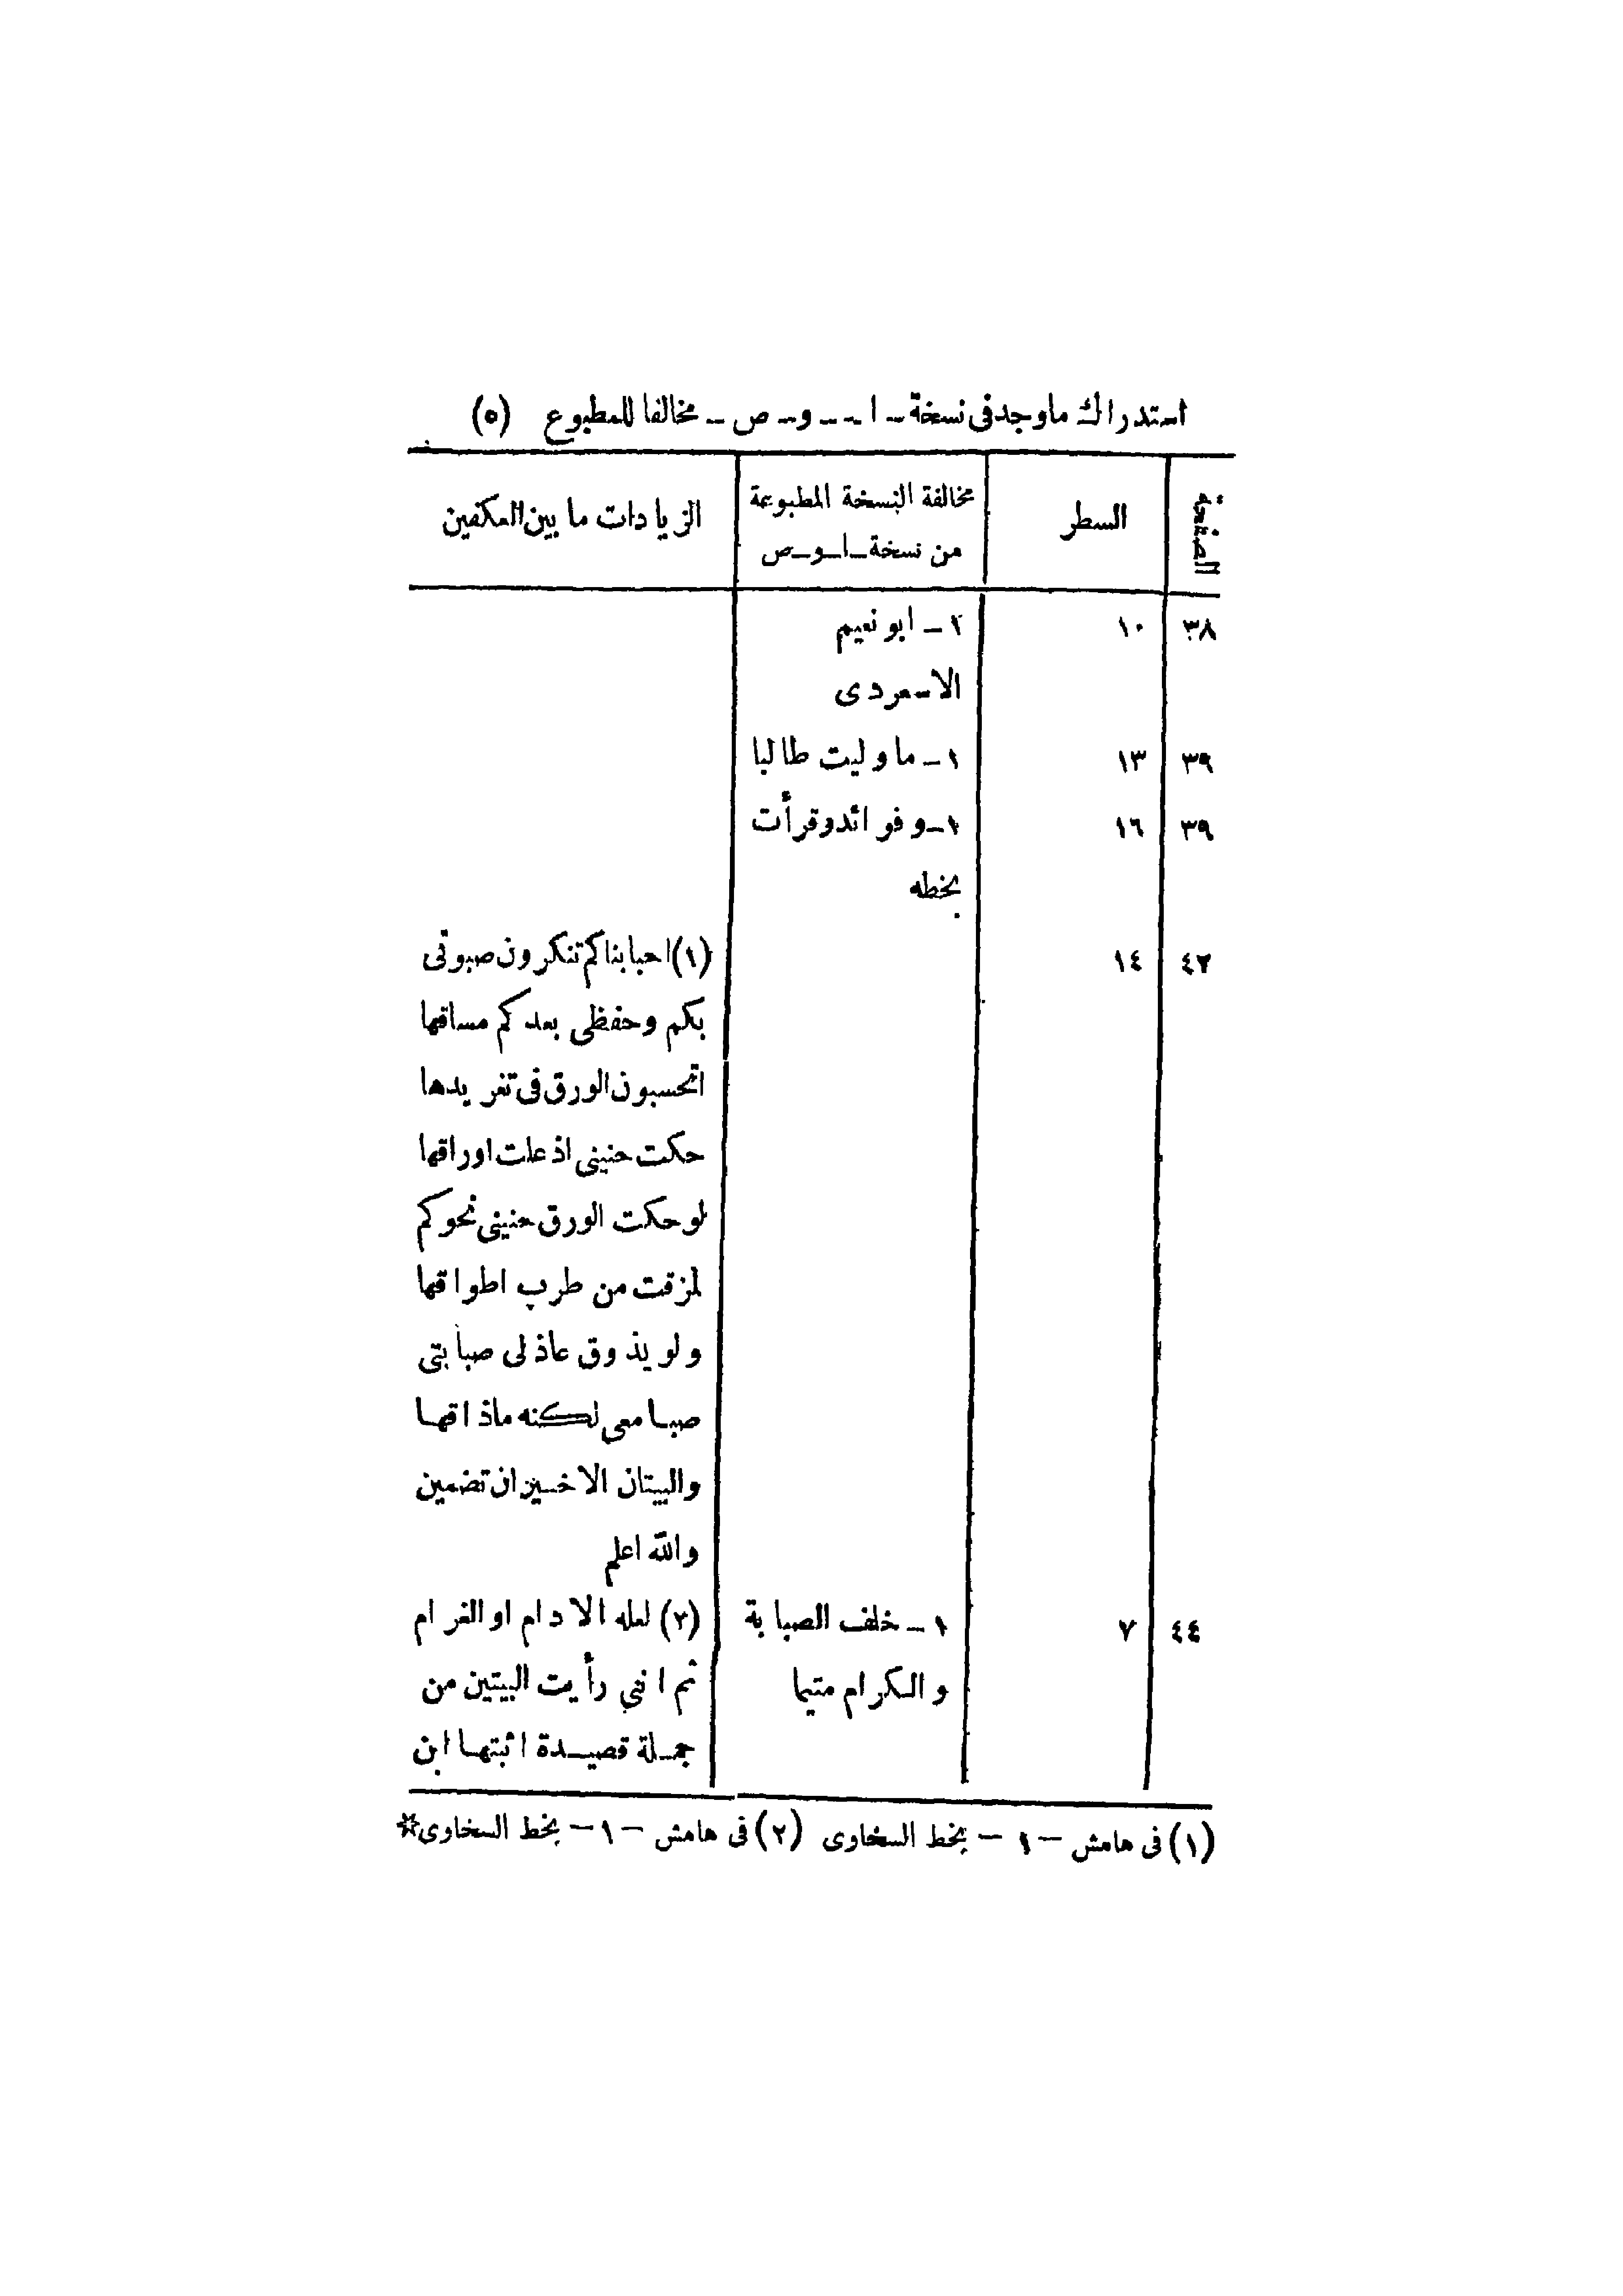 استدراك ماوجد فى نسخة ـ ا ـ ـ و ـ ص ـ مخالفا للمطبوع (٥)
الصفحة السطر مخالفة النسخة المطبوعة الزيادات ما بين العكفين
من نسخة ـ ا ـ و ـ ص
٣٨ ١٠ ٢ ـ ابو نعيم
الاسعردى
٣٩ ١٣ ١ ـ ما وليت طالبا
٣٩ ١٦ ١ ـ وفوائد وقرأت
بخطه
٤٢ ١٤ (١) احبابنا كم تنكرون صبوتى
بكم وحفظى بعدكم مساقها
اتحسبون الورق فى تغريدها
حكت حنينى اذ علت اوراقها
لو حكت الورق حنينى نحوكم
لمزقت من طرب اطواقها
ولو يذوق عاذلى صبابتى
صبا معى لكنه ما ذاقها
والبيتان الاخيران تضمين
والله اعلم
٤٤ ٧ ١ ـ خلف الصبابة (٢) لعله الادام او الغرام
والكرام متيما ثم اننى رأيت البيتين من
جملة قصيدة اثبتها ابن
(١) فى هامش – ١ – بخط السخاوى (٢) فى هامش – ١ – بخط السخاوى☆